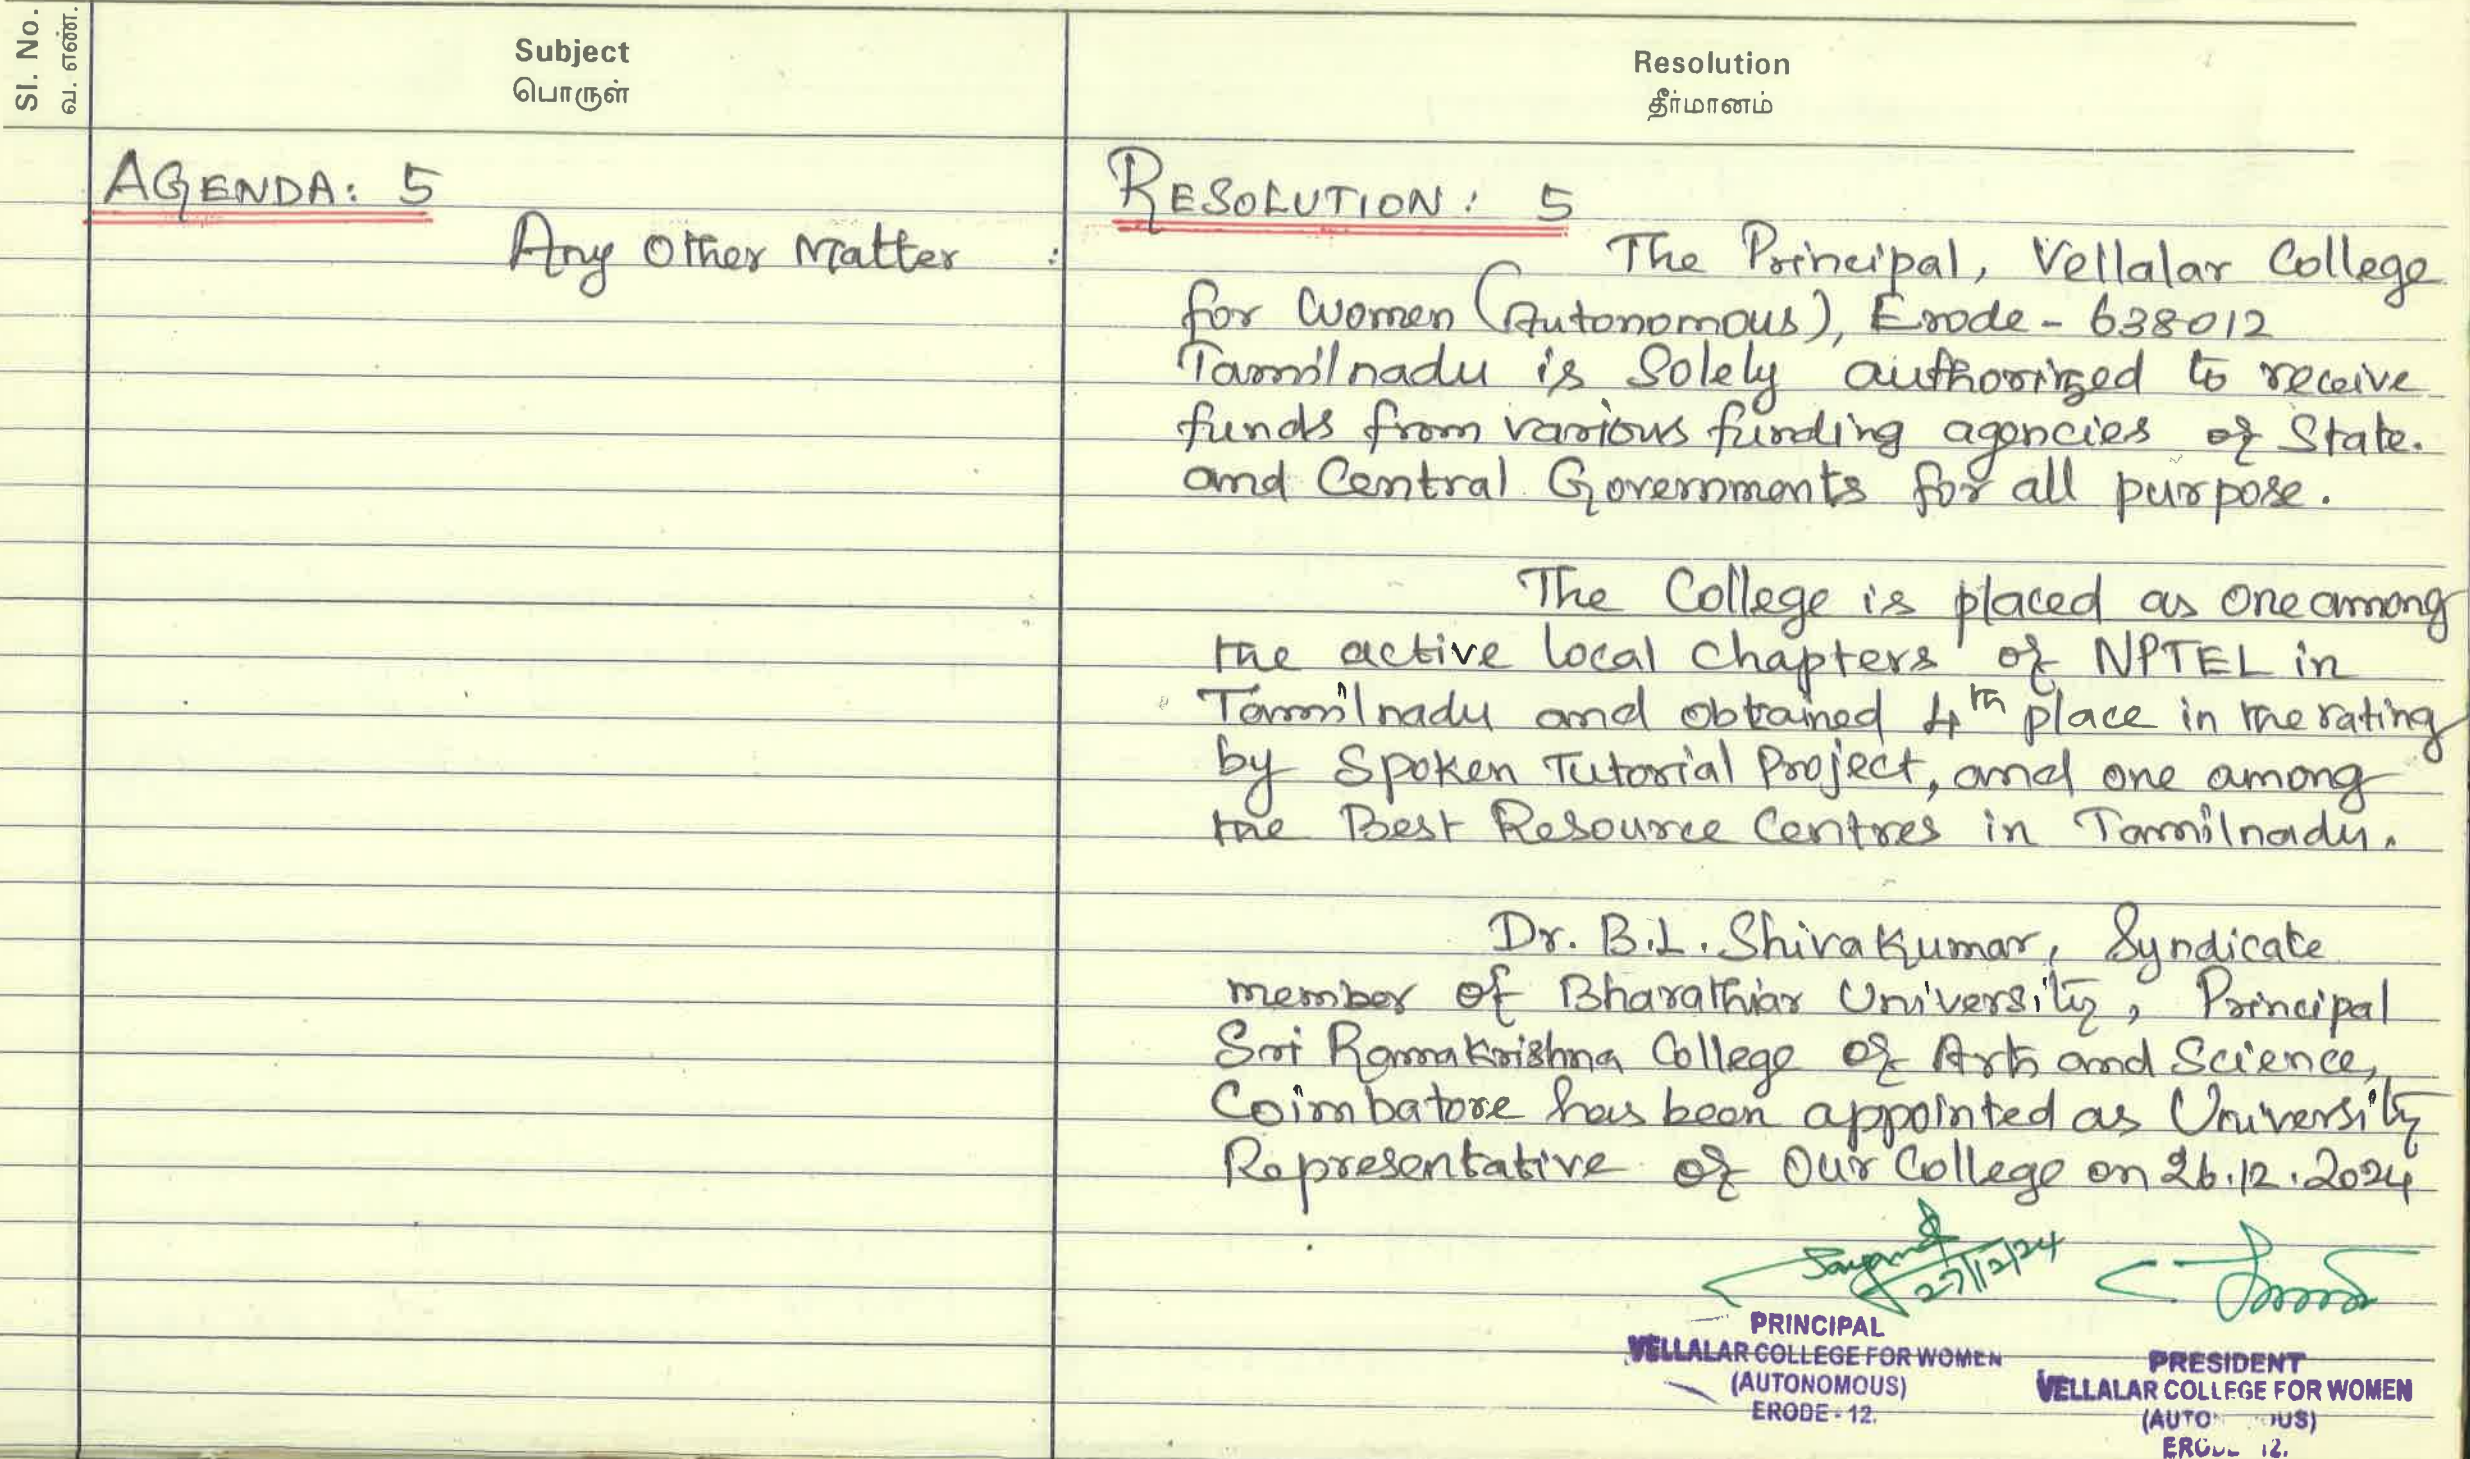 Sl. No.
வ. எண்.
Subject
பொருள்
Resolution
தீர்மானம்
AGENDA: 5
Any Other Matter :
RESOLUTION: 5
The Principal, Vellalar College
for Women (Autonomous), Erode - 638012
Tamilnadu is Solely authorized to receive
funds from various funding agencies of State.
and Central Governments for all purpose.
The College is placed as one among
the active local chapters of NPTEL in
Tamilnadu and obtained 4th place in the rating
by Spoken Tutorial Project, and one among
the Best Resource Centres in Tamilnadu.
Dr. B.L. Shivakumar, Syndicate
member of Bharathiar University, Principal
Sri Ramakrishna College of Arts and Science,
Coimbatore has been appointed as University
Representative of Our College on 26.12.2024
27/12/24
PRINCIPAL
VELLALAR COLLEGE FOR WOMEN
(AUTONOMOUS)
ERODE - 12.
PRESIDENT
VELLALAR COLLEGE FOR WOMEN
(AUTONOMOUS)
ERODE 12.